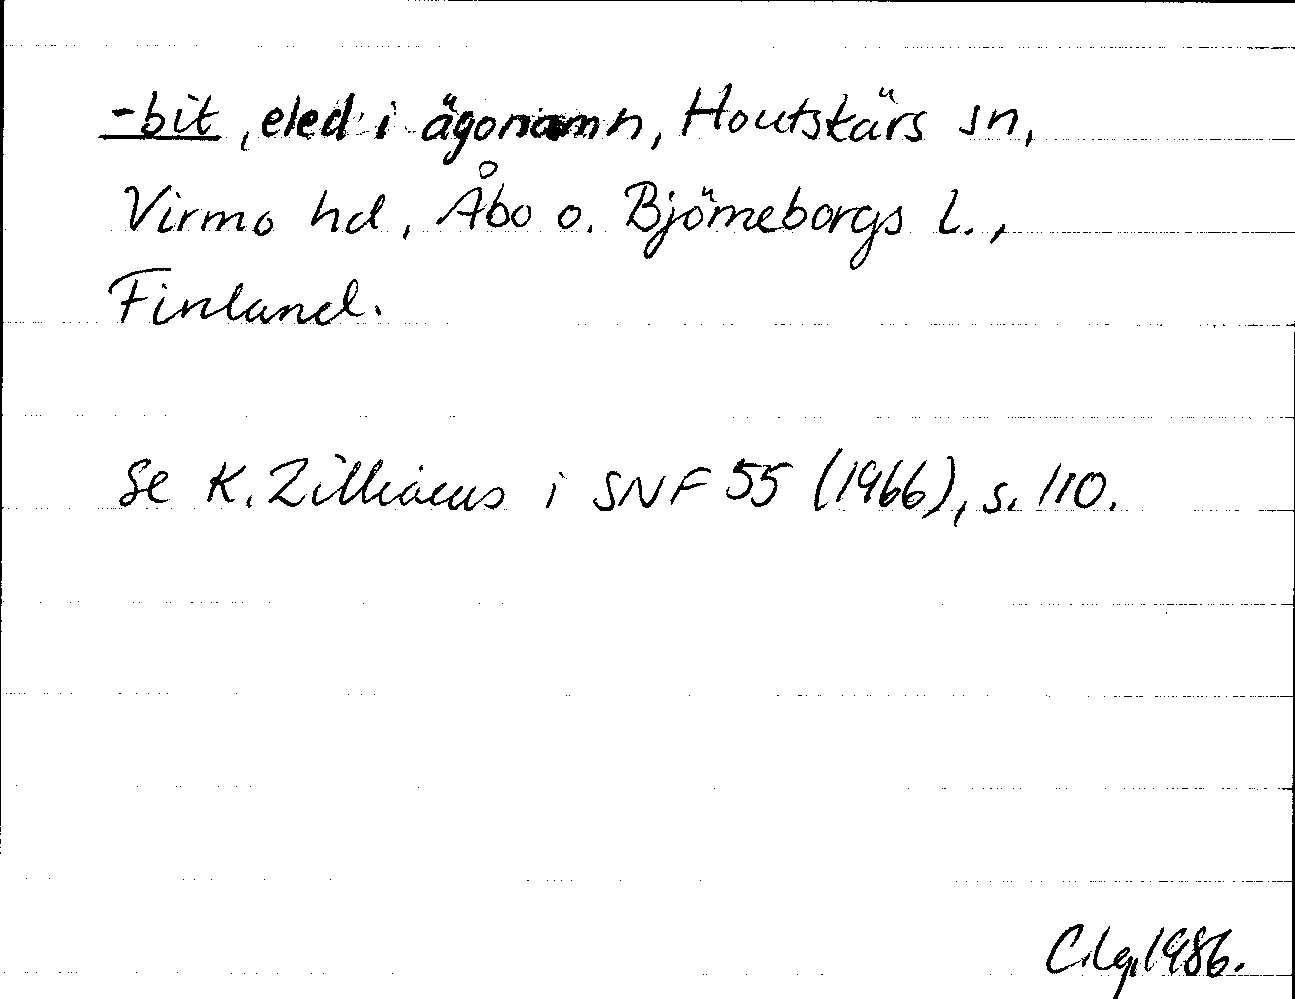 -bit, eled i ägonamn, Houtskärs sn,
Virmo hd, Åbo o. Björneborgs l.,
Finland.
Se K. Zilliacus i SNF 55 (1966), s. 110.
C.Lg. 1986.